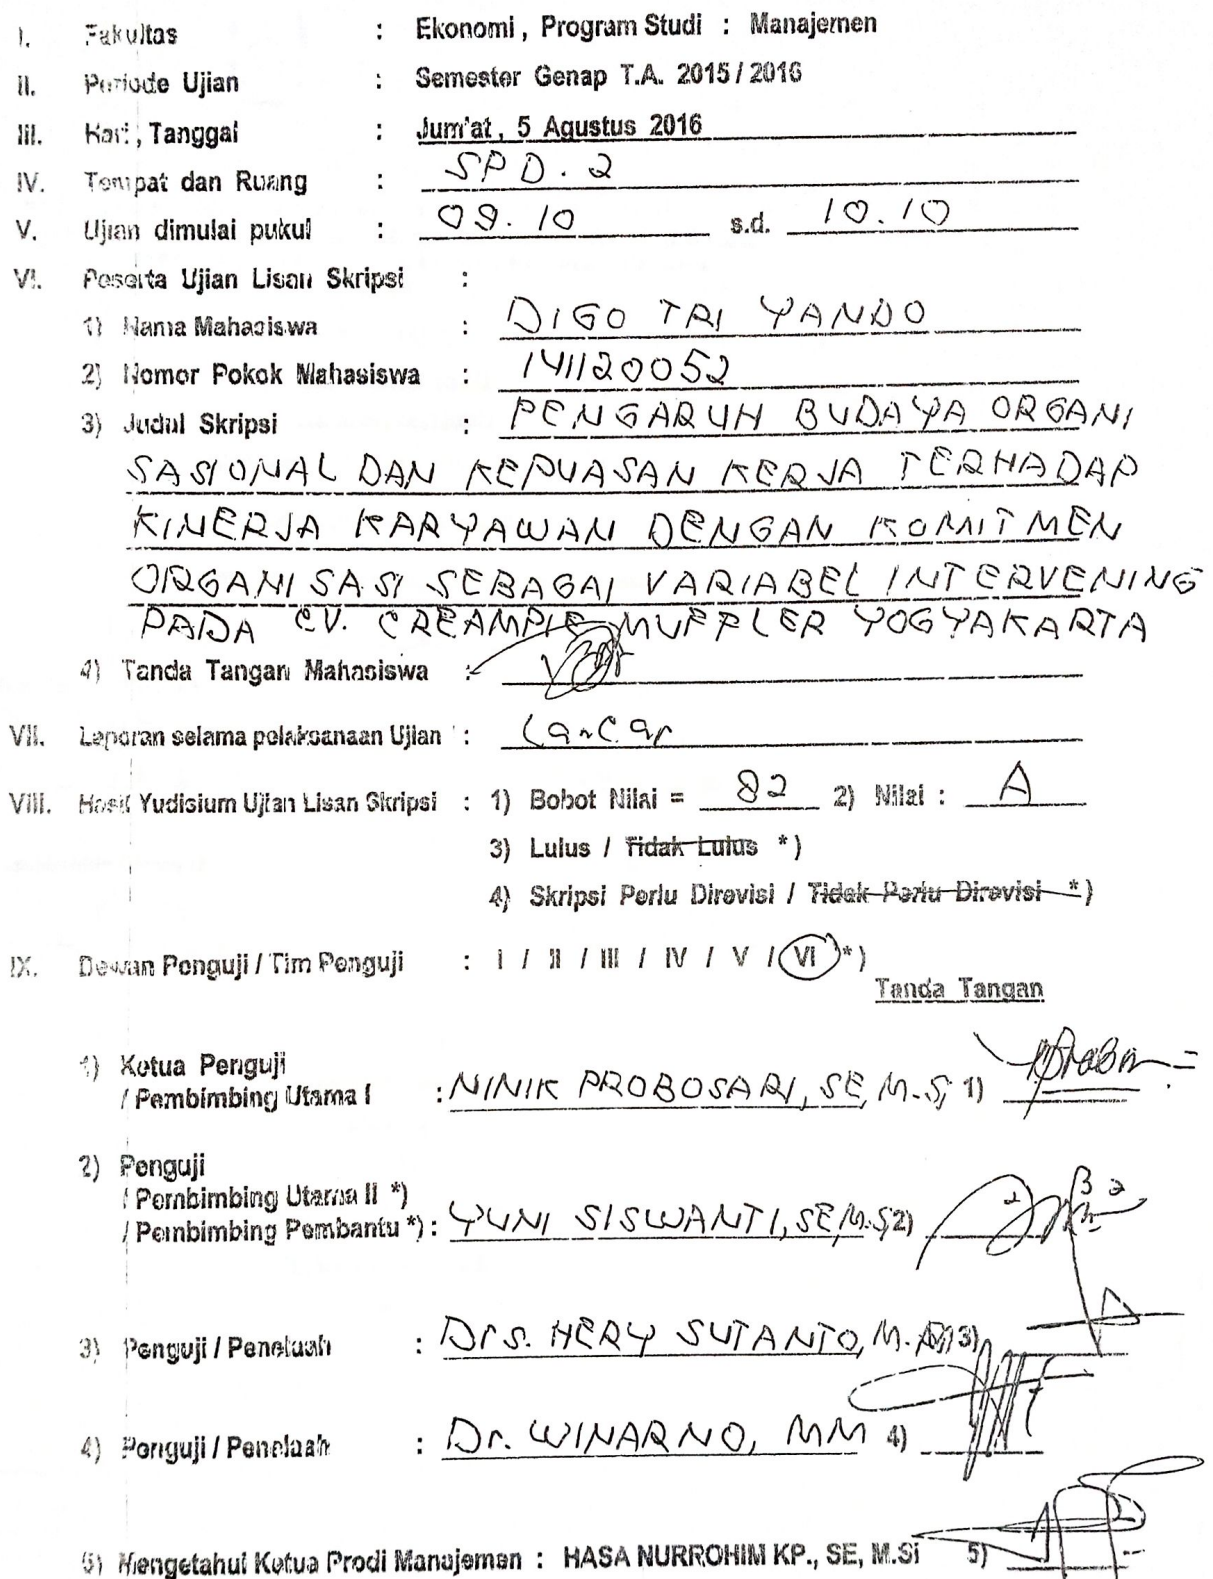 I. Fakultas : Ekonomi, Program Studi : Manajemen
II. Periode Ujian : Semester Genap T.A. 2015 / 2016
III. Hari, Tanggal : Jum'at, 5 Agustus 2016
IV. Tempat dan Ruang : SPD. 2
V. Ujian dimulai pukul : 09.10 s.d. 10.10
VI. Peserta Ujian Lisan Skripsi :
1) Nama Mahasiswa : DIGO TRI YANDO
2) Nomor Pokok Mahasiswa : 141120052
3) Judul Skripsi : PENGARUH BUDAYA ORGANI
SASIONAL DAN KEPUASAN KERJA TERHADAP
KINERJA KARYAWAN DENGAN KOMITMEN
ORGANISASI SEBAGAI VARIABEL INTERVENING
PADA CV. CREAMPIE MUFFLER YOGYAKARTA
4) Tanda Tangan Mahasiswa :
VII. Laporan selama pelaksanaan Ujian : Lancar
VIII. Hasil Yudisium Ujian Lisan Skripsi : 1) Bobot Nilai = 82 2) Nilai : A
3) Lulus / Tidak Lulus *)
4) Skripsi Perlu Direvisi / Tidak Perlu Direvisi *)
IX. Dewan Penguji / Tim Penguji : I / II / III / IV / V / VI *)
Tanda Tangan
1) Ketua Penguji
/ Pembimbing Utama I : NINIK PROBOSARI, SE, M.Si 1)
2) Penguji
/ Pembimbing Utama II *)
/ Pembimbing Pembantu *) : YUNI SISWANTI, SE, M.Si 2)
3) Penguji / Penelaah : Drs. HERY SUTANTO, M. 3)
4) Penguji / Penelaah : Dr. WINARNO, MM 4)
5) Mengetahui Ketua Prodi Manajemen : HASA NURROHIM KP., SE, M.Si 5)